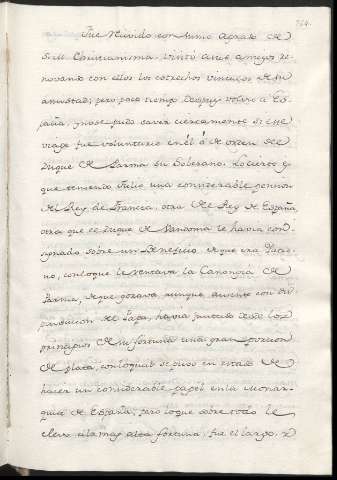 Fue Recivido con sumo agrado de
Su Christianisima, visitó a sus amigos re-
novando con ellos los estrechos vinculos de su
amistad; pero poco tiempo despues volvio a Es-
paña, y no se pudo saver ciertamente si este
viage fue voluntario en él ó de orden de
Duque de Parma su Soberano. Lo cierto es,
que teniendo Julio una considerable pension
del Rey de Francia, otra del Rey de España,
otra que el Duque de Vandoma le havia con-
signado sobre un Beneficio de que era Patro-
no, con lo que le rentava la Canongia de
Parma, de que gozava aunque ausente con dis-
pensacion del Papa, havia juntado desde los
principios de su fortuna una gran porcion
de plata, con la qual se puso en estado de
hacer un considerable papel en la Monar-
quia de España; pero lo que sobre todo le
elevó a la mas alta fortuna, fue el largo, y